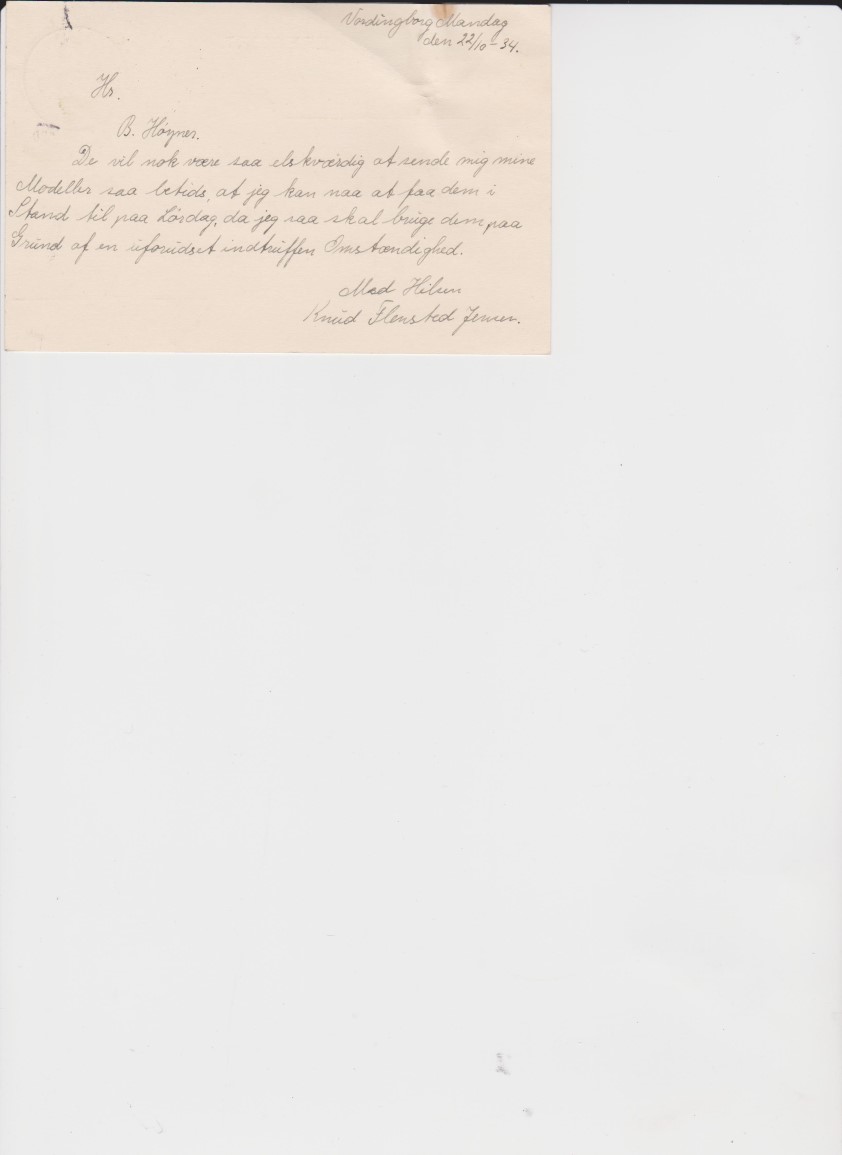 Vordingborg Mandag
den 22/10-34.
Hr.
B. Höyner.
De vil nok være saa elskværdig at sende mig mine
Modeller saa betids, at jeg kan naa at faa dem i
Stand til paa Lördag, da jeg saa skal bruge dem paa
Grund af en uforudset indtruffen Omstændighed.
Med Hilsen
Knud Flensted Jensen.